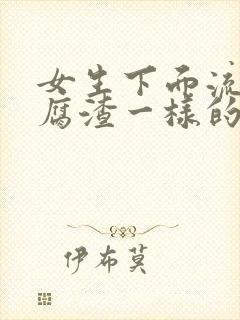 女生下面流
腐渣一样的
伊布莫